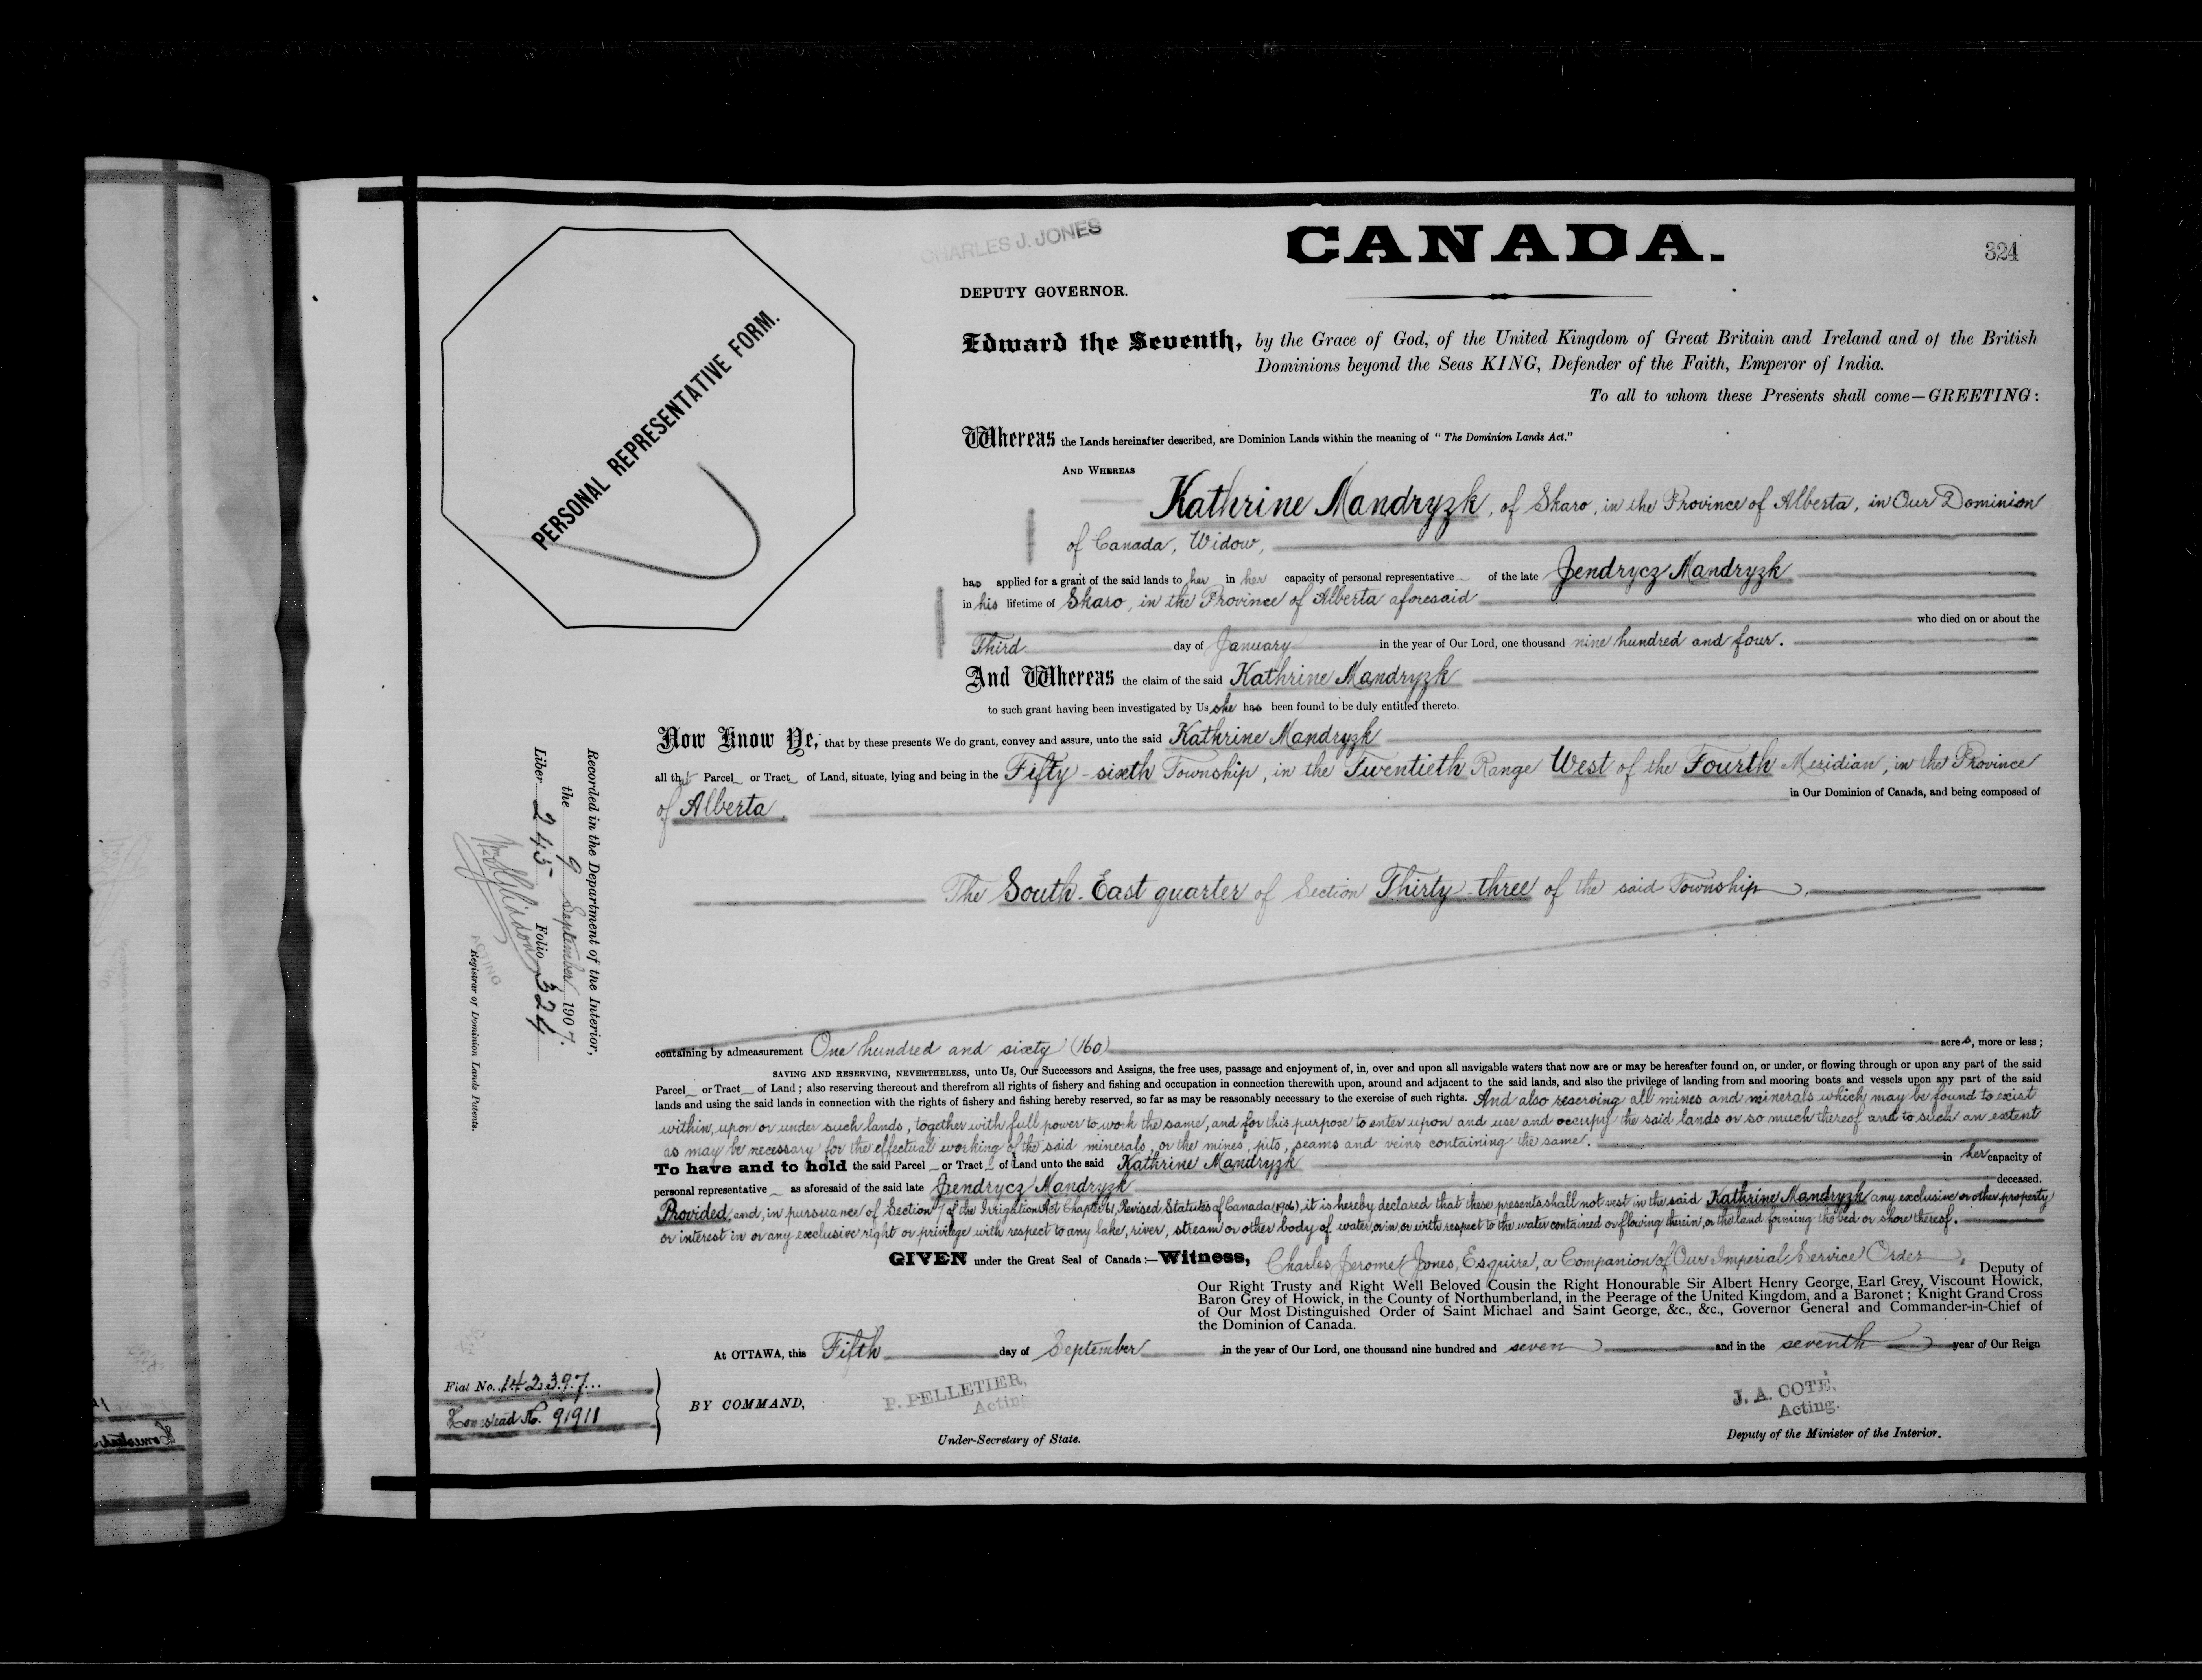 CHARLES J. JONES
CANADA.
324
DEPUTY GOVERNOR.
PERSONAL REPRESENTATIVE FORM.
Edward the Seventh, by the Grace of God, of the United Kingdom of Great Britain and Ireland and of the British
Dominions beyond the Seas KING, Defender of the Faith, Emperor of India.
To all to whom these Presents shall come—GREETING:
Whereas the Lands hereinafter described, are Dominion Lands within the meaning of "The Dominion Lands Act."
AND WHEREAS
Kathrine Mandryzk, of Skaro, in the Province of Alberta, in Our Dominion
of Canada, Widow,
has applied for a grant of the said lands to her in her capacity of personal representative of the late Jendrycz Mandryzk
in his lifetime of Skaro, in the Province of Alberta aforesaid
who died on or about the
Third day of January in the year of Our Lord, one thousand nine hundred and four.
And Whereas the claim of the said Kathrine Mandryzk
to such grant having been investigated by Us she has been found to be duly entitled thereto.
Now Know Ye, that by these presents We do grant, convey and assure, unto the said Kathrine Mandryzk
all that Parcel or Tract of Land, situate, lying and being in the Fifty-sixth Township, in the Twentieth Range West of the Fourth Meridian, in the Province
of Alberta, in Our Dominion of Canada, and being composed of
The South-East quarter of Section Thirty-three of the said Township.
containing by admeasurement One hundred and sixty (160) acres, more or less;
SAVING AND RESERVING, NEVERTHELESS, unto Us, Our Successors and Assigns, the free uses, passage and enjoyment of, in, over and upon all navigable waters that now are or may be hereafter found on, or under, or flowing through or upon any part of the said
Parcel or Tract of Land; also reserving thereout and therefrom all rights of fishery and fishing and occupation in connection therewith upon, around and adjacent to the said lands, and also the privilege of landing from and mooring boats and vessels upon any part of the said
lands and using the said lands in connection with the rights of fishery and fishing hereby reserved, so far as may be reasonably necessary to the exercise of such rights. And also reserving all mines and minerals which may be found to exist
within, upon or under such lands, together with full power to work the same, and for this purpose to enter upon and use and occupy the said lands or so much thereof and to such an extent
as may be necessary for the effectual working of the said minerals, or the mines, pits, seams and veins containing the same.
To have and to hold the said Parcel or Tract of Land unto the said Kathrine Mandryzk in her capacity of
personal representative as aforesaid of the said late Jendrycz Mandryzk deceased.
Provided, and, in pursuance of Section 7 of the Irrigation Act Chapter 61, Revised Statutes of Canada (1906), it is hereby declared that these presents shall not vest in the said Kathrine Mandryzk any exclusive or other property
or interest in or any exclusive right or privilege with respect to any lake, river, stream or other body of water, or in or with respect to the water contained or flowing therein, or the land forming the bed or shore thereof.
GIVEN under the Great Seal of Canada:—Witness, Charles Jerome Jones, Esquire, a Companion of Our Imperial Service Order, Deputy of
Our Right Trusty and Right Well Beloved Cousin the Right Honourable Sir Albert Henry George, Earl Grey, Viscount Howick,
Baron Grey of Howick, in the County of Northumberland, in the Peerage of the United Kingdom, and a Baronet; Knight Grand Cross
of Our Most Distinguished Order of Saint Michael and Saint George, &c., &c., Governor General and Commander-in-Chief of
the Dominion of Canada.
At OTTAWA, this Fifth day of September in the year of Our Lord, one thousand nine hundred and seven and in the seventh year of Our Reign
BY COMMAND,
P. PELLETIER,
Acting
Under-Secretary of State.
J. A. COTÉ,
Acting.
Deputy of the Minister of the Interior.
Fiat No. 142397...
Homestead No. 91911
Recorded in the Department of the Interior,
the 9 September 1907.
Liber 245 Folio 324
ACTING
Registrar of Dominion Lands Patents.